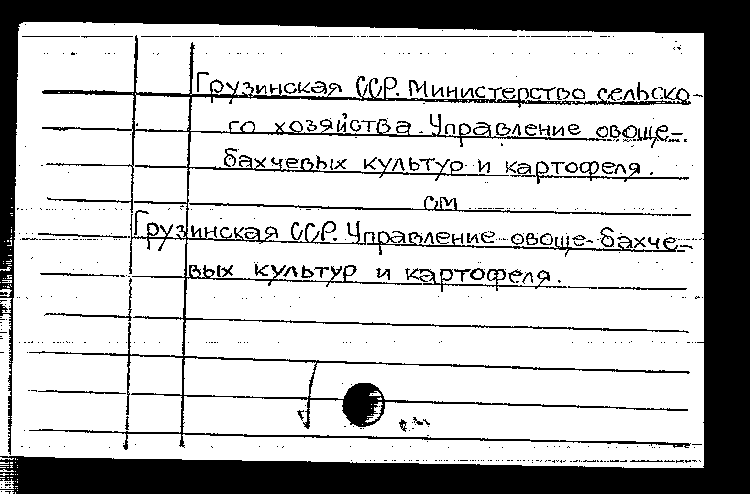 Грузинская ССР. Министерство сельско-
го хозяйства. Управление овоще-
бахчевых культур и картофеля.
см
Грузинская ССР. Управление овоще-бахче-
вых культур и картофеля.